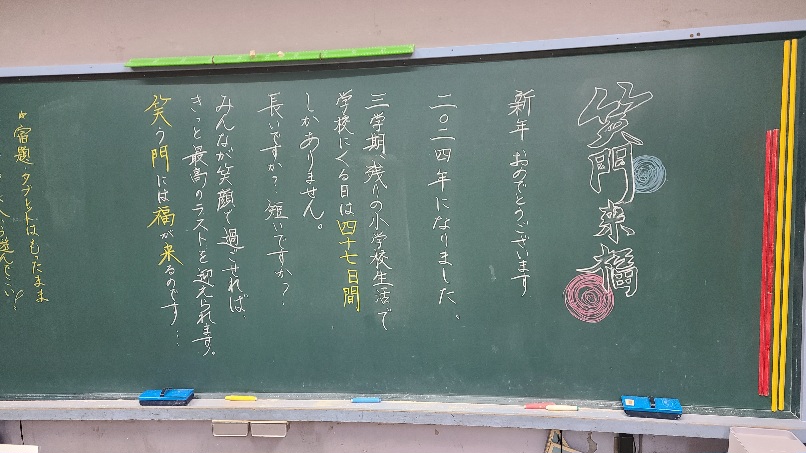 笑門来福
新年 おめでとうございます
二〇二四年になりました。
三学期、残りの小学校生活で
学校にくる日は四十七日間
しかありません。
長いですか?短いですか?
みんなが笑顔で過ごせれば、
きっと最高のラストを迎えられます。
笑う門には福が来るのです…
☆宿題 タブレットはもったまま